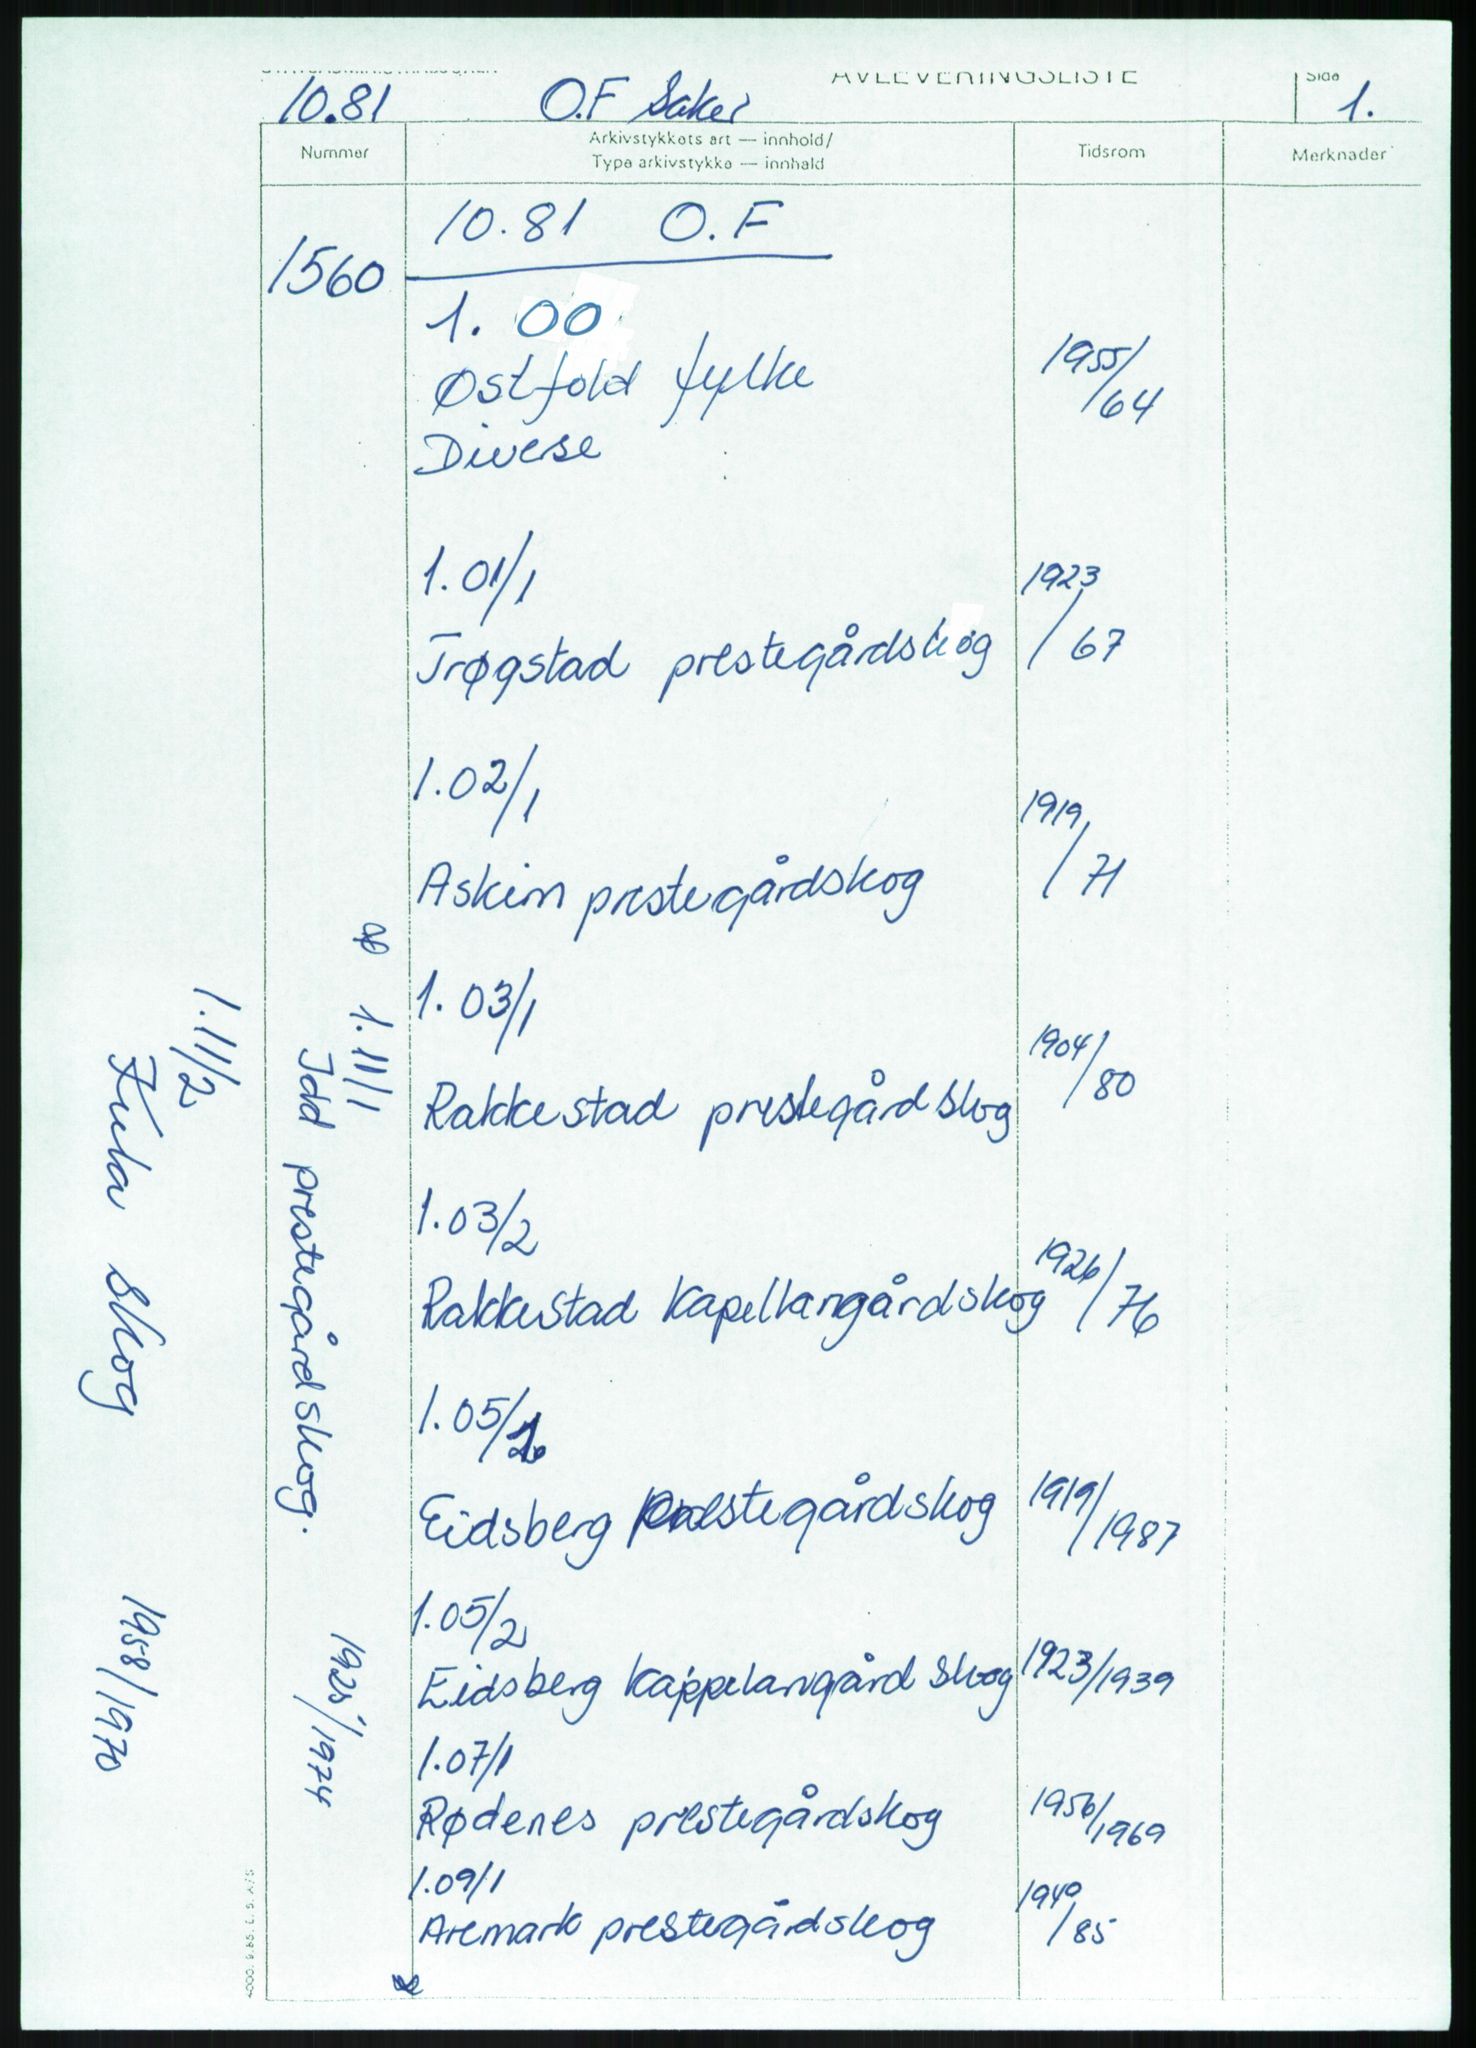 AVLEVERINGSLISTE
Side
10.81 O.F Saker 1.
Nummer
Arkivstykkets art — innhold/
Type arkivstykke — innhald
Tidsrom
Merknader
10.81 O.F
1560
1. 00
Østfold fylke 1955/64
Diverse
1.01/1
Trøgstad prestegårdskog 1923/67
1.02/1
Askim prestegårdskog 1919/71
1.03/1
Rakkestad prestegårdskog 1904/80
1.03/2
Rakkestad kapellangårdskog 1926/76
1.05/1
Eidsberg prestegårdskog 1919/1987
1.05/2
Eidsberg kappelangård skog 1923/1939
1.07/1
Rødenes prestegårdskog 1956/1969
1.09/1
Aremark prestegårdskog 1940/85
1.11/1
Idd prestegårdskog. 1925/1974
1.11/2
Kula skog 1958/1970
4000. 9.85. E. S. A/S